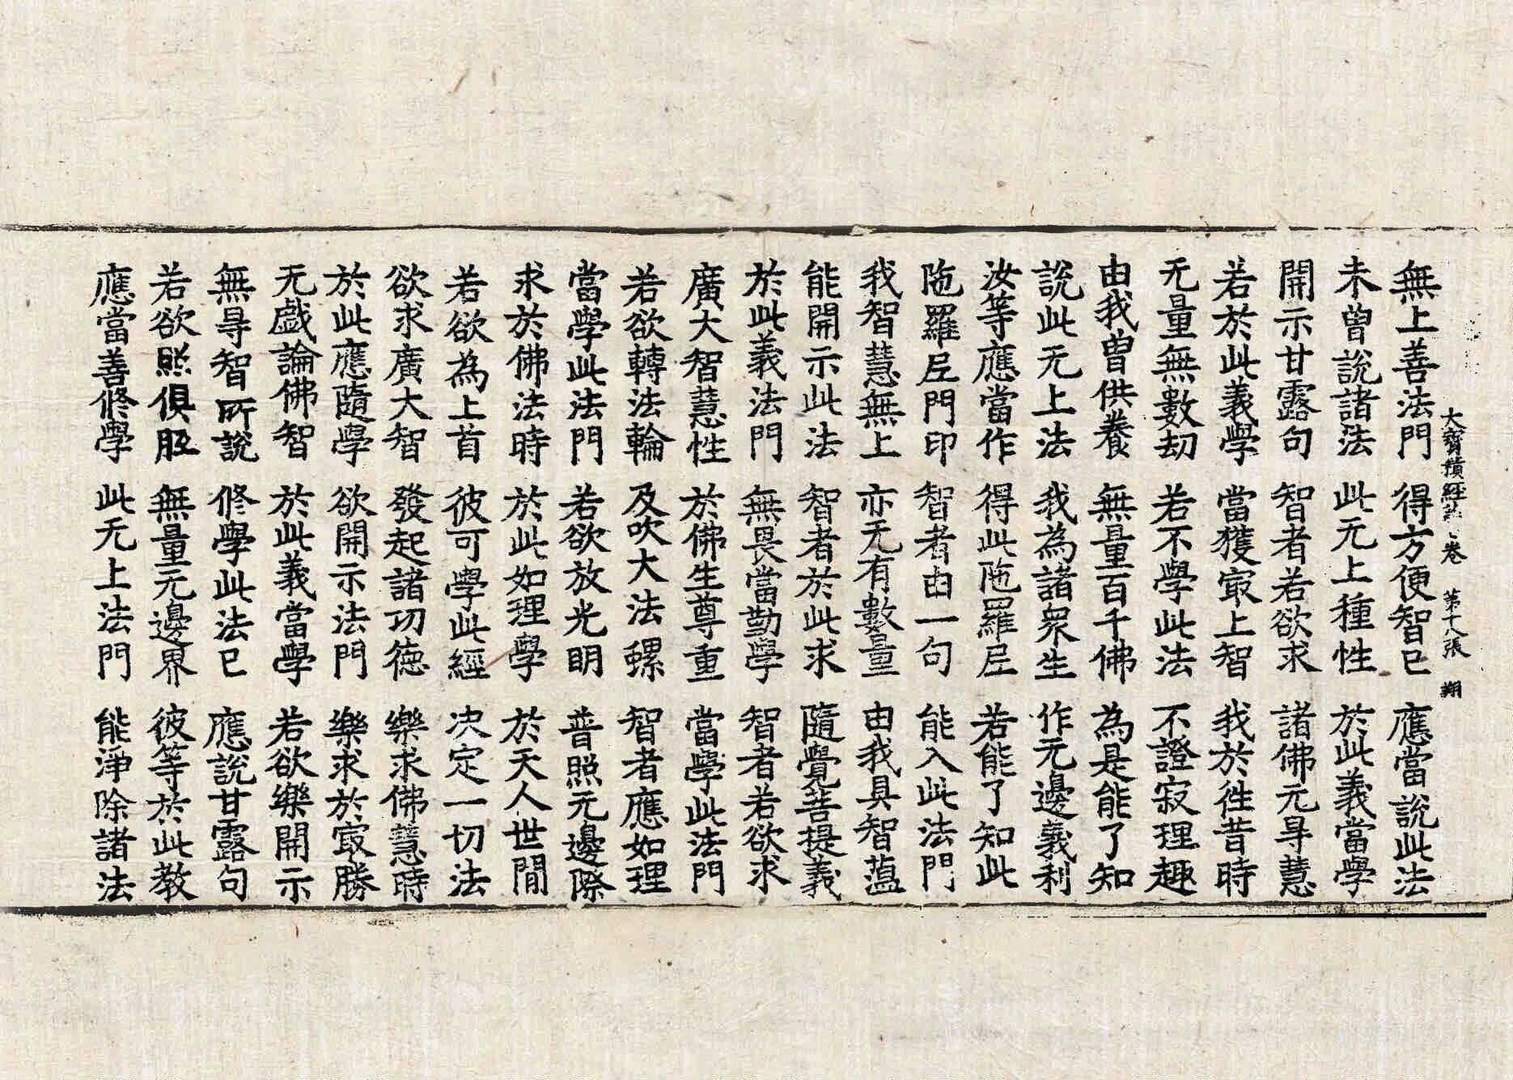 大寶積經 卷 第十八張 翔
無上善法門 得方便智已 應當說此法
未曾說諸法 此无上種性 於此義當學
開示甘露句 智者若欲求 諸佛无㝵慧
若於此義學 當獲㝡上智 我於徃昔時
无量無數劫 若不學此法 不證寂理趣
由我曾供養 無量百千佛 為是能了知
說此无上法 我為諸衆生 作无邊義利
汝等應當作 得此陁羅尼 若能了知此
陁羅尼門印 智者由一句 能入此法門
我智慧無上 亦无有數量 由我具智蕰
能開示此法 智者於此求 隨覺菩提義
於此義法門 無畏當勤學 智者若欲求
廣大智慧性 於佛生尊重 當學此法門
若欲轉法輪 及吹大法螺 智者應如理
當學此法門 若欲放光明 普照无邊際
求於佛法時 於此如理學 於天人世間
若欲為上首 彼可學此經 决定一切法
欲求廣大智 發起諸功德 樂求佛慧時
於此應隨學 欲開示法門 樂求於㝡勝
无戲論佛智 於此義當學 若欲樂開示
無㝵智所說 修學此法已 應說甘露句
若欲照俱胝 無量无邊界 彼等於此教
應當善修學 此无上法門 能淨除諸法